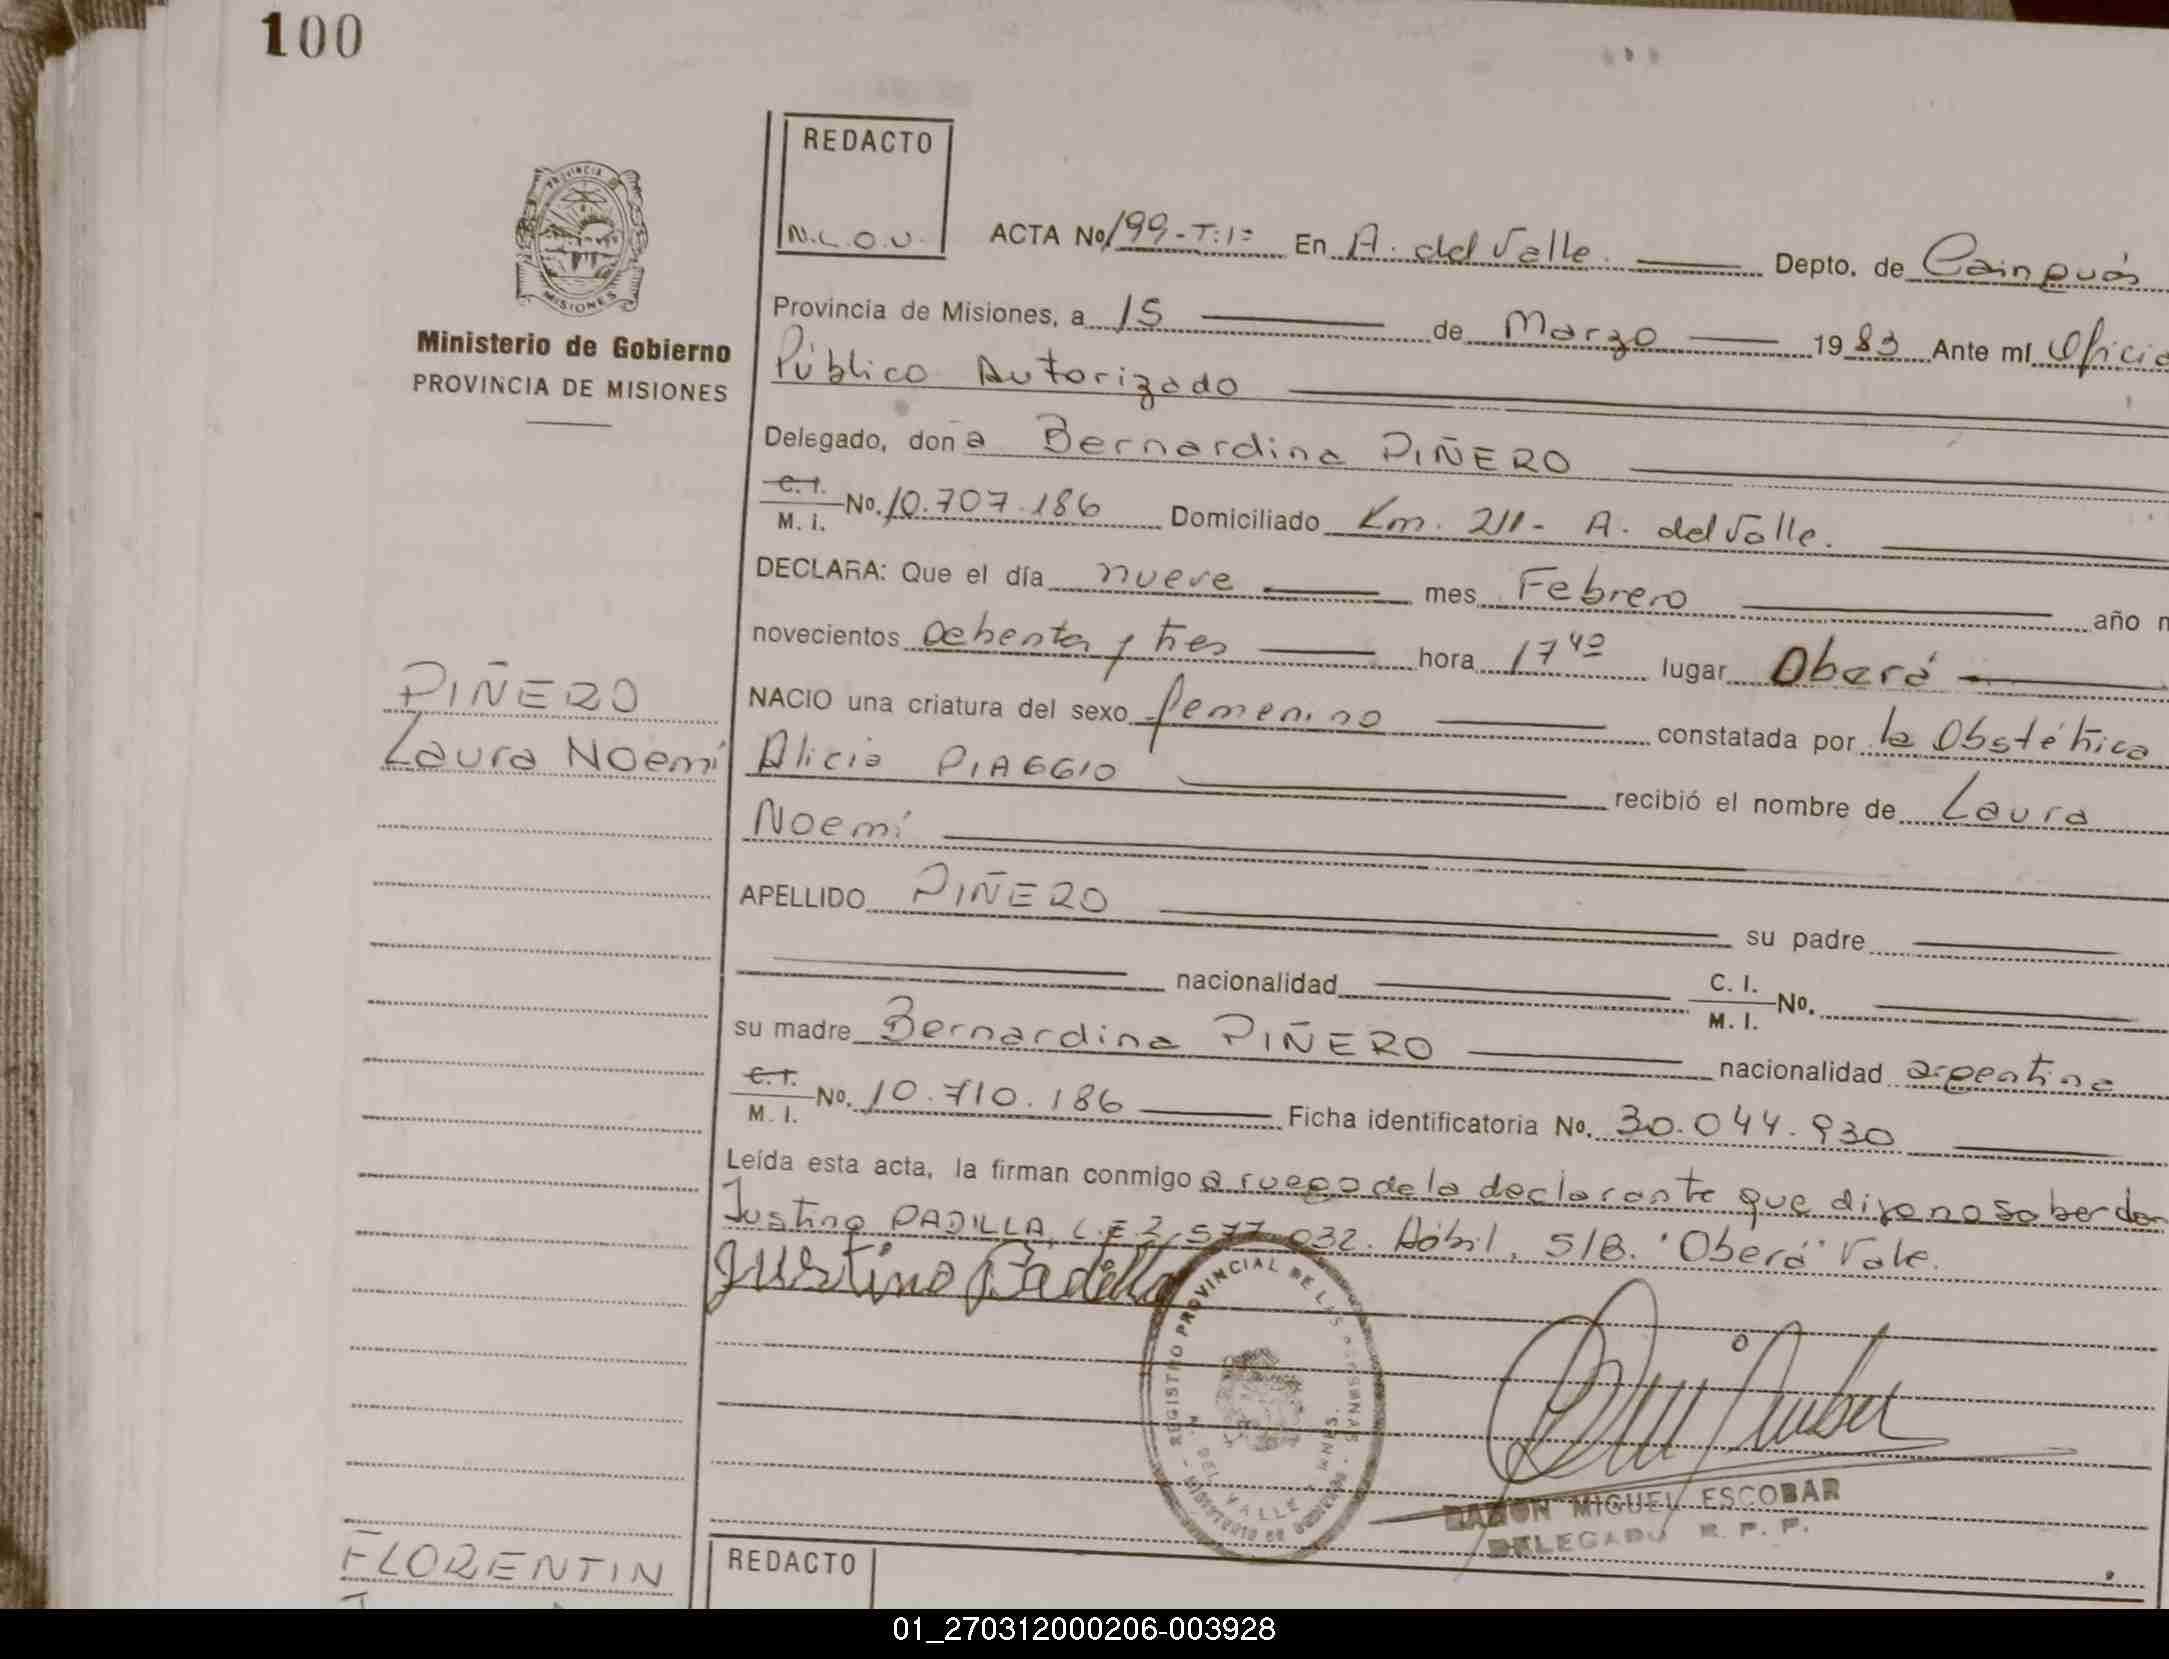 100
REDACTO
N.L.O.U.
PROVINCIA
MISIONES
Ministerio de Gobierno
PROVINCIA DE MISIONES
ACTA No 199-T:1= En A. del Valle Depto. de Cainguás
Provincia de Misiones, a 15 de Marzo 1983 Ante mí Oficia
Público Autorizado
Delegado, doña Bernardina PIÑERO
C. I.
M. I. No. 10.707.186 Domiciliado Km. 211- A. del Valle.
DECLARA: Que el día nueve mes Febrero año m
novecientos ochenta y tres hora 17 40 lugar Oberá
PIÑERO
Laura Noemí
NACIO una criatura del sexo femenino constatada por la Obstétrica
Alicia PIAGGIO recibió el nombre de Laura
Noemí
APELLIDO PIÑERO su padre
nacionalidad C. I.
M. I. No.
su madre Bernardina PIÑERO nacionalidad argentina
C. I.
M. I. No. 10.710.186 Ficha identificatoria No. 30.044.930
Leída esta acta, la firman conmigo a ruego de la declarante que dijo no saber
Justino PADILLA, L.E 2,577.032. Hábil, S/B. "Oberá" Vale.
Justino Padilla
REGISTRO PROVINCIAL DE LAS PERSONAS
DEL VALLE
MINISTERIO DE GOBIERNO
RAMON MIGUEL ESCOBAR
DELEGADO R. P. P.
FLORENTIN
REDACTO
01_270312000206-003928